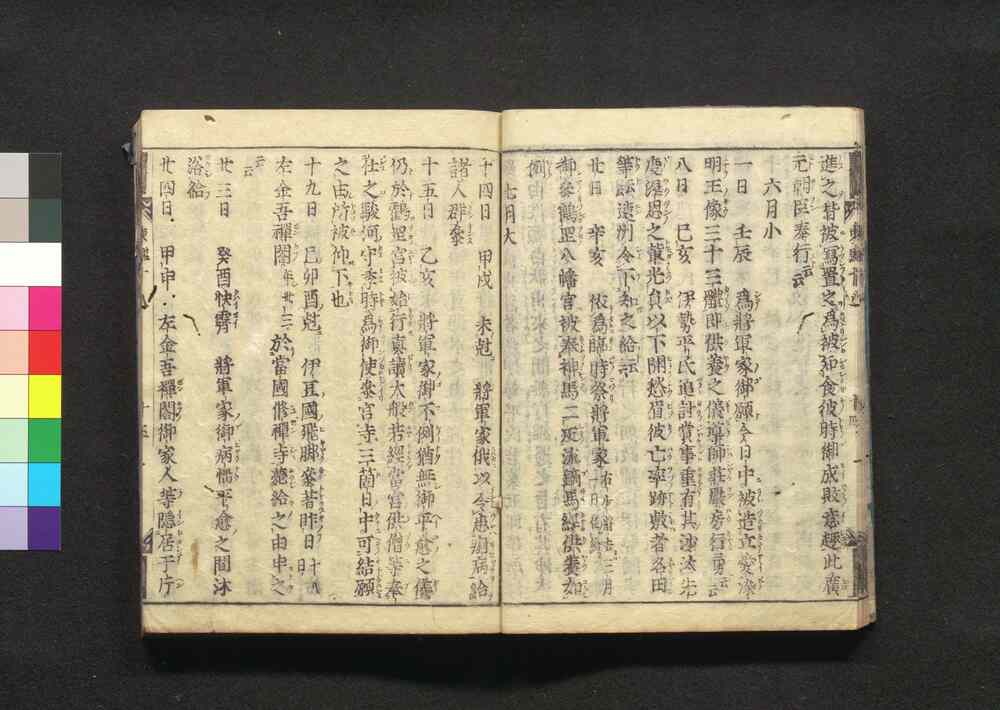 進之昔被寫置之爲被知食彼時御成敗意趣此廣
元朝臣奉行云云
六月小
一日 壬辰 爲將軍家御願今日中被造立愛染
明王像三十三體即供養之儀導師莊嚴房行勇云云
八日 己亥 伊勢平氏追討賞事重有其沙汰先
度漏恩之輩光員以下開愁眉彼亡卒跡敷者各田
等驗遠州令下知之給云云
廿日 辛亥 依爲臨時祭將軍家
御參鶴岡八幡宮被奉神馬二疋流鏑馬經供養如
例
七月大
十四日 甲戌 未尅 將軍家俄以令患痢病給
諸人群參
十五日 乙亥 將軍家御不例猶無御平愈之儀
仍於鶴岡宮被始行眞讀大般若經當宮供僧等奉
仕之駿河守季時爲御使參宮寺三箇日中可結願
之由所被仰下也
十九日 己卯酉尅 伊豆國飛脚參著昨日十八
左金吾禪閤年廿三於當國修禪寺薨給之由申之
云云
廿三日 癸酉快霽 將軍家御病惱平愈之間沐
浴給
廿四日 甲申 左金吾禪閤御家人等隱居于片